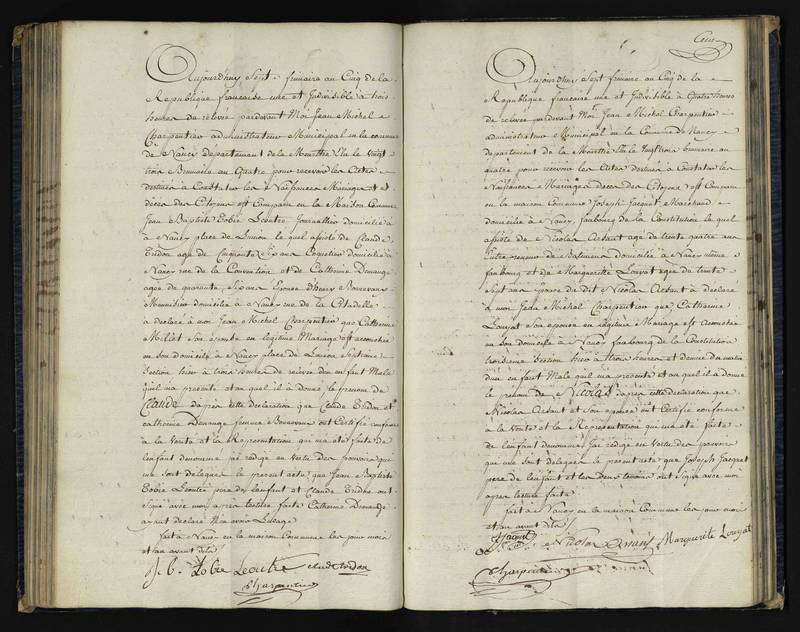 Aujourdhuy Sept frimaire au Cinq de la
République francaise une et Indivisible à trois
heures de relevée pardevant Moi Jean Michel
Charpentier administrateur Municipal en la commune
de Nancy département de la Meurthe Elu le vingt
trois Brumaire au Quatre pour recevoir les Actes
destinés à Constater les Naissances Mariages et
décès des Citoyens est Comparu en la Maison Commune
Jean Baptiste Tobie Leoutre Journallier domicilié à
à Nancy place de Lunion le quel assisté de Claude
agé de Cinquante Six ans Coquetier domicilié à
Nancy rue de la Convention et de Catherine Denange
agée de quarante Six ans Epouse
Menuisier domicilié à Nancy rue de la Citadelle
a déclaré à moi Jean Michel Charpentier que Catherine
Milet Son épouse en légitime Mariage est accouchée
en son domicile à Nancy place de Lunion Septieme
Section hier à trois heures de relevée d'un enfant Male
quil ma presenté et auquel il a donné le prenom de
Claude d'après cette déclaration que Claude et
Catherine Denange femme ont Certifié conforme
à la verité et la Représentation qui ma été faite de
lenfant denommé jai rédigé en vertu des pouvoirs qui
me sont délegués le present acte que Jean Baptiste
Tobie Leoutre pere de lenfant et Claude ont
signé avec moi apres lecture faite Catherine Denange
ayant déclaré Nen avoir Lusage
fait à Nancy en la maison Commune les jour mois
et an avant dits
j. b. Tobie Leoutre
Charpentier
Cent
Aujourdhuy Sept frimaire au Cinq de la
République francaise une et Indivisible à Quatre heures
de relevée pardevant Moi Jean Michel Charpentier
administrateur Municipal en la Commune de Nancy
département de la Meurthe Elu le vingt trois brumaire au
quatre pour recevoir les Actes destinés à Constater les
Naissances Mariages décès des Citoyens est Comparu
en la maison Commune Joseph Jacquet Marchand
domicilié à Nancy, faubourg de la Constitution le quel
assisté de Nicolas agé de trente quatre ans
Entrepreneur de Batimens domicilié à Nancy même
faubourg et de Marguerite Louyat agée de trente
Sept ans épouse du dit Nicolas a déclaré
à moi Jean Michel Charpentier que Catherine
Louyat Son épouse en légitime Mariage est accouchée
en son domicile à Nancy faubourg de la Constitution
troisieme Section hier à trois heures et demie du matin
d'un enfant Male quil ma presenté et auquel il a donné
le prenom de Nicolas dapres cette déclaration que
Nicolas et Son épouse ont Certifié conforme
à la Verité et la Représentation qui ma été faite
de lenfant denommé Jai rédigé en vertu des pouvoirs
qui me sont délegués le present acte que Joseph Jacquet
pere de lenfant et les Deux témoins ont Signé avec moi
apres lecture faite
fait à Nancy en la maison Commune les jour mois
et an avant dits
Jacquet
Nicolas Marguerite Louyat
Charpentier